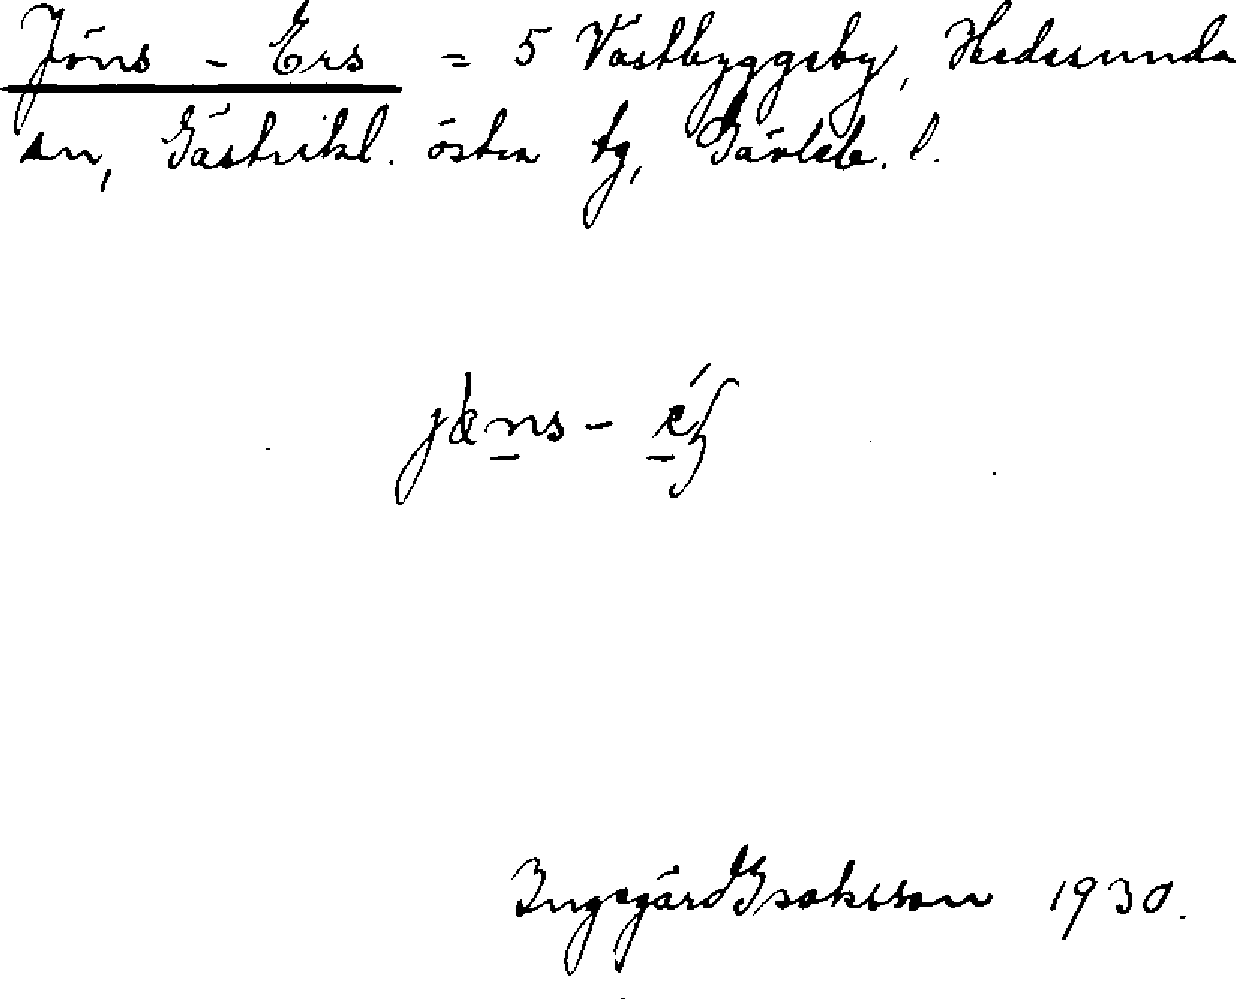 Jöns - Ers = 5 Västbyggeby, Hedesunda
sn, Gästrikl. östra tg, Gävleb. l.
jœns -
Ingegärd Isakcson 1930.